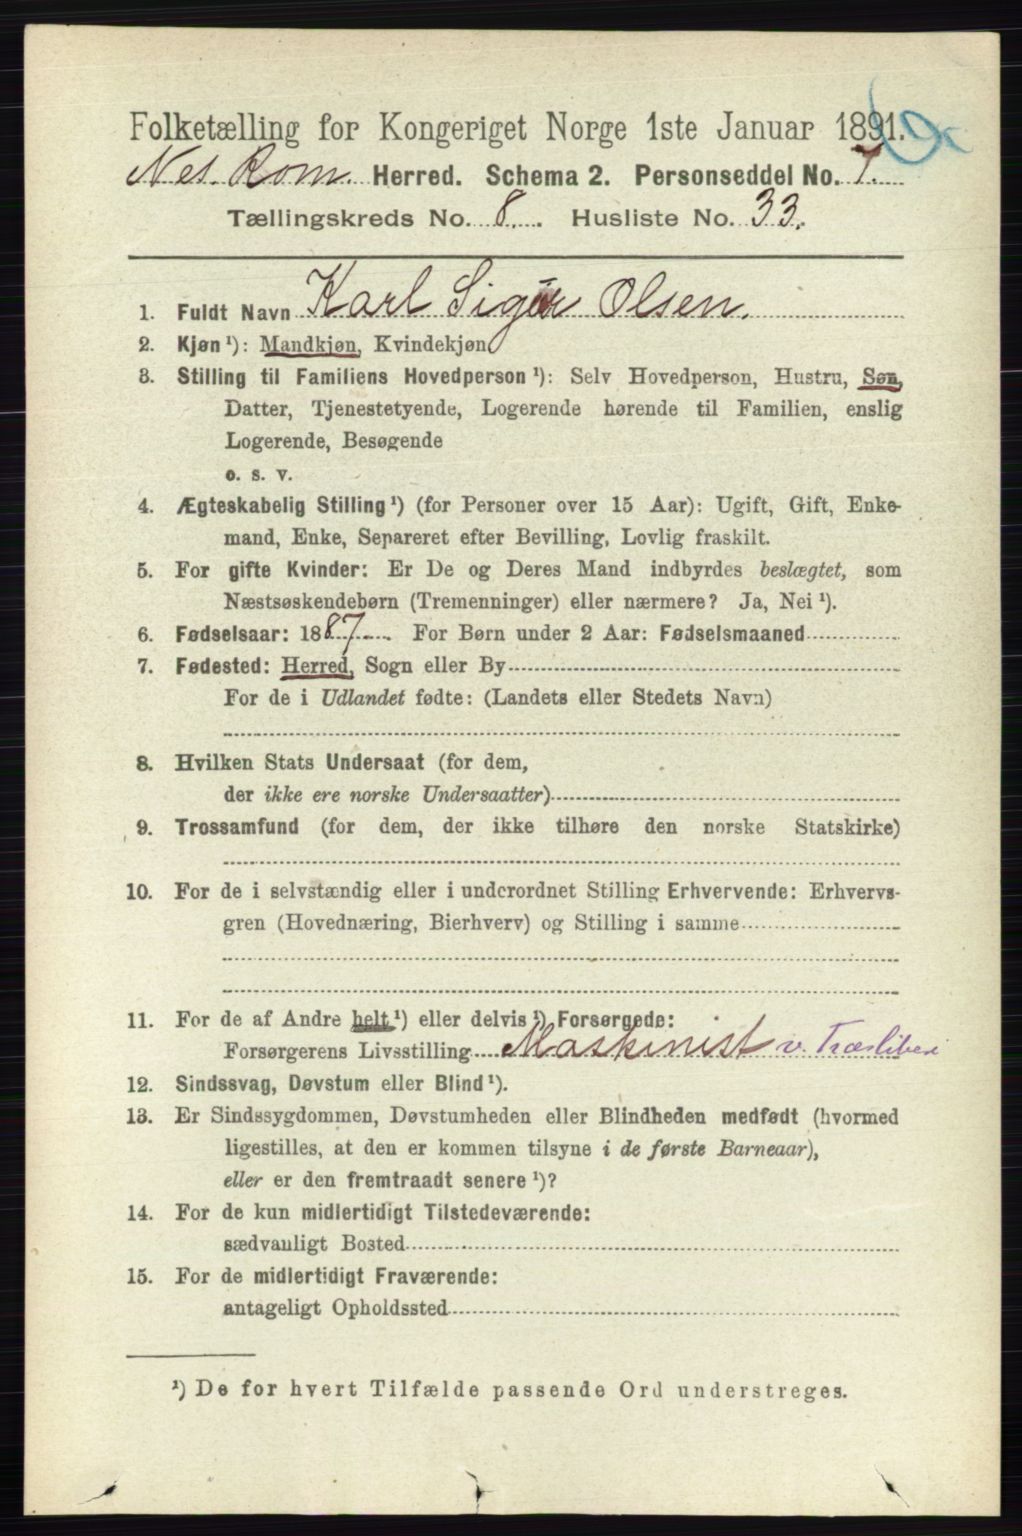 Folketælling for Kongeriget Norge 1ste Januar 1891.
Nes. Rom. Herred. Schema 2. Personseddel No. 7.
Tællingskreds No. 8. Husliste No. 33.
1. Fuldt Navn Karl Olsen.
2. Kjøn ¹): Mandkjøn, Kvindekjøn
3. Stilling til Familiens Hovedperson ¹): Selv Hovedperson, Hustru, Søn,
Datter, Tjenestetyende, Logerende hørende til Familien, enslig
Logerende, Besøgende
o. s. v.
4. Ægteskabelig Stilling ¹) (for Personer over 15 Aar): Ugift, Gift, Enke-
mand, Enke, Separeret efter Bevilling, Lovlig fraskilt.
5. For gifte Kvinder: Er De og Deres Mand indbyrdes beslægtet, som
Næstsøskendebørn (Tremenninger) eller nærmere? Ja, Nei ¹).
6. Fødselsaar: 1887. For Børn under 2 Aar: Fødselsmaaned
7. Fødested: Herred, Sogn eller By
For de i Udlandet fødte: (Landets eller Stedets Navn)
8. Hvilken Stats Undersaat (for dem,
der ikke ere norske Undersaatter)
9. Trossamfund (for dem, der ikke tilhøre den norske Statskirke)
10. For de i selvstændig eller i underordnet Stilling Erhvervende: Erhvervs-
gren (Hovednæring, Bierhverv) og Stilling i samme
11. For de af Andre helt ¹) eller delvis ¹) Forsørgede:
Forsørgerens Livsstilling Maskinist v. Træsliberi
12. Sindssvag, Døvstum eller Blind ¹).
13. Er Sindssygdommen, Døvstumheden eller Blindheden medfødt (hvormed
ligestilles, at den er kommen tilsyne i de første Barneaar),
eller er den fremtraadt senere ¹)?
14. For de kun midlertidigt Tilstedeværende:
sædvanligt Bosted
15. For de midlertidigt Fraværende:
antageligt Opholdssted
¹) De for hvert Tilfælde passende Ord understreges.